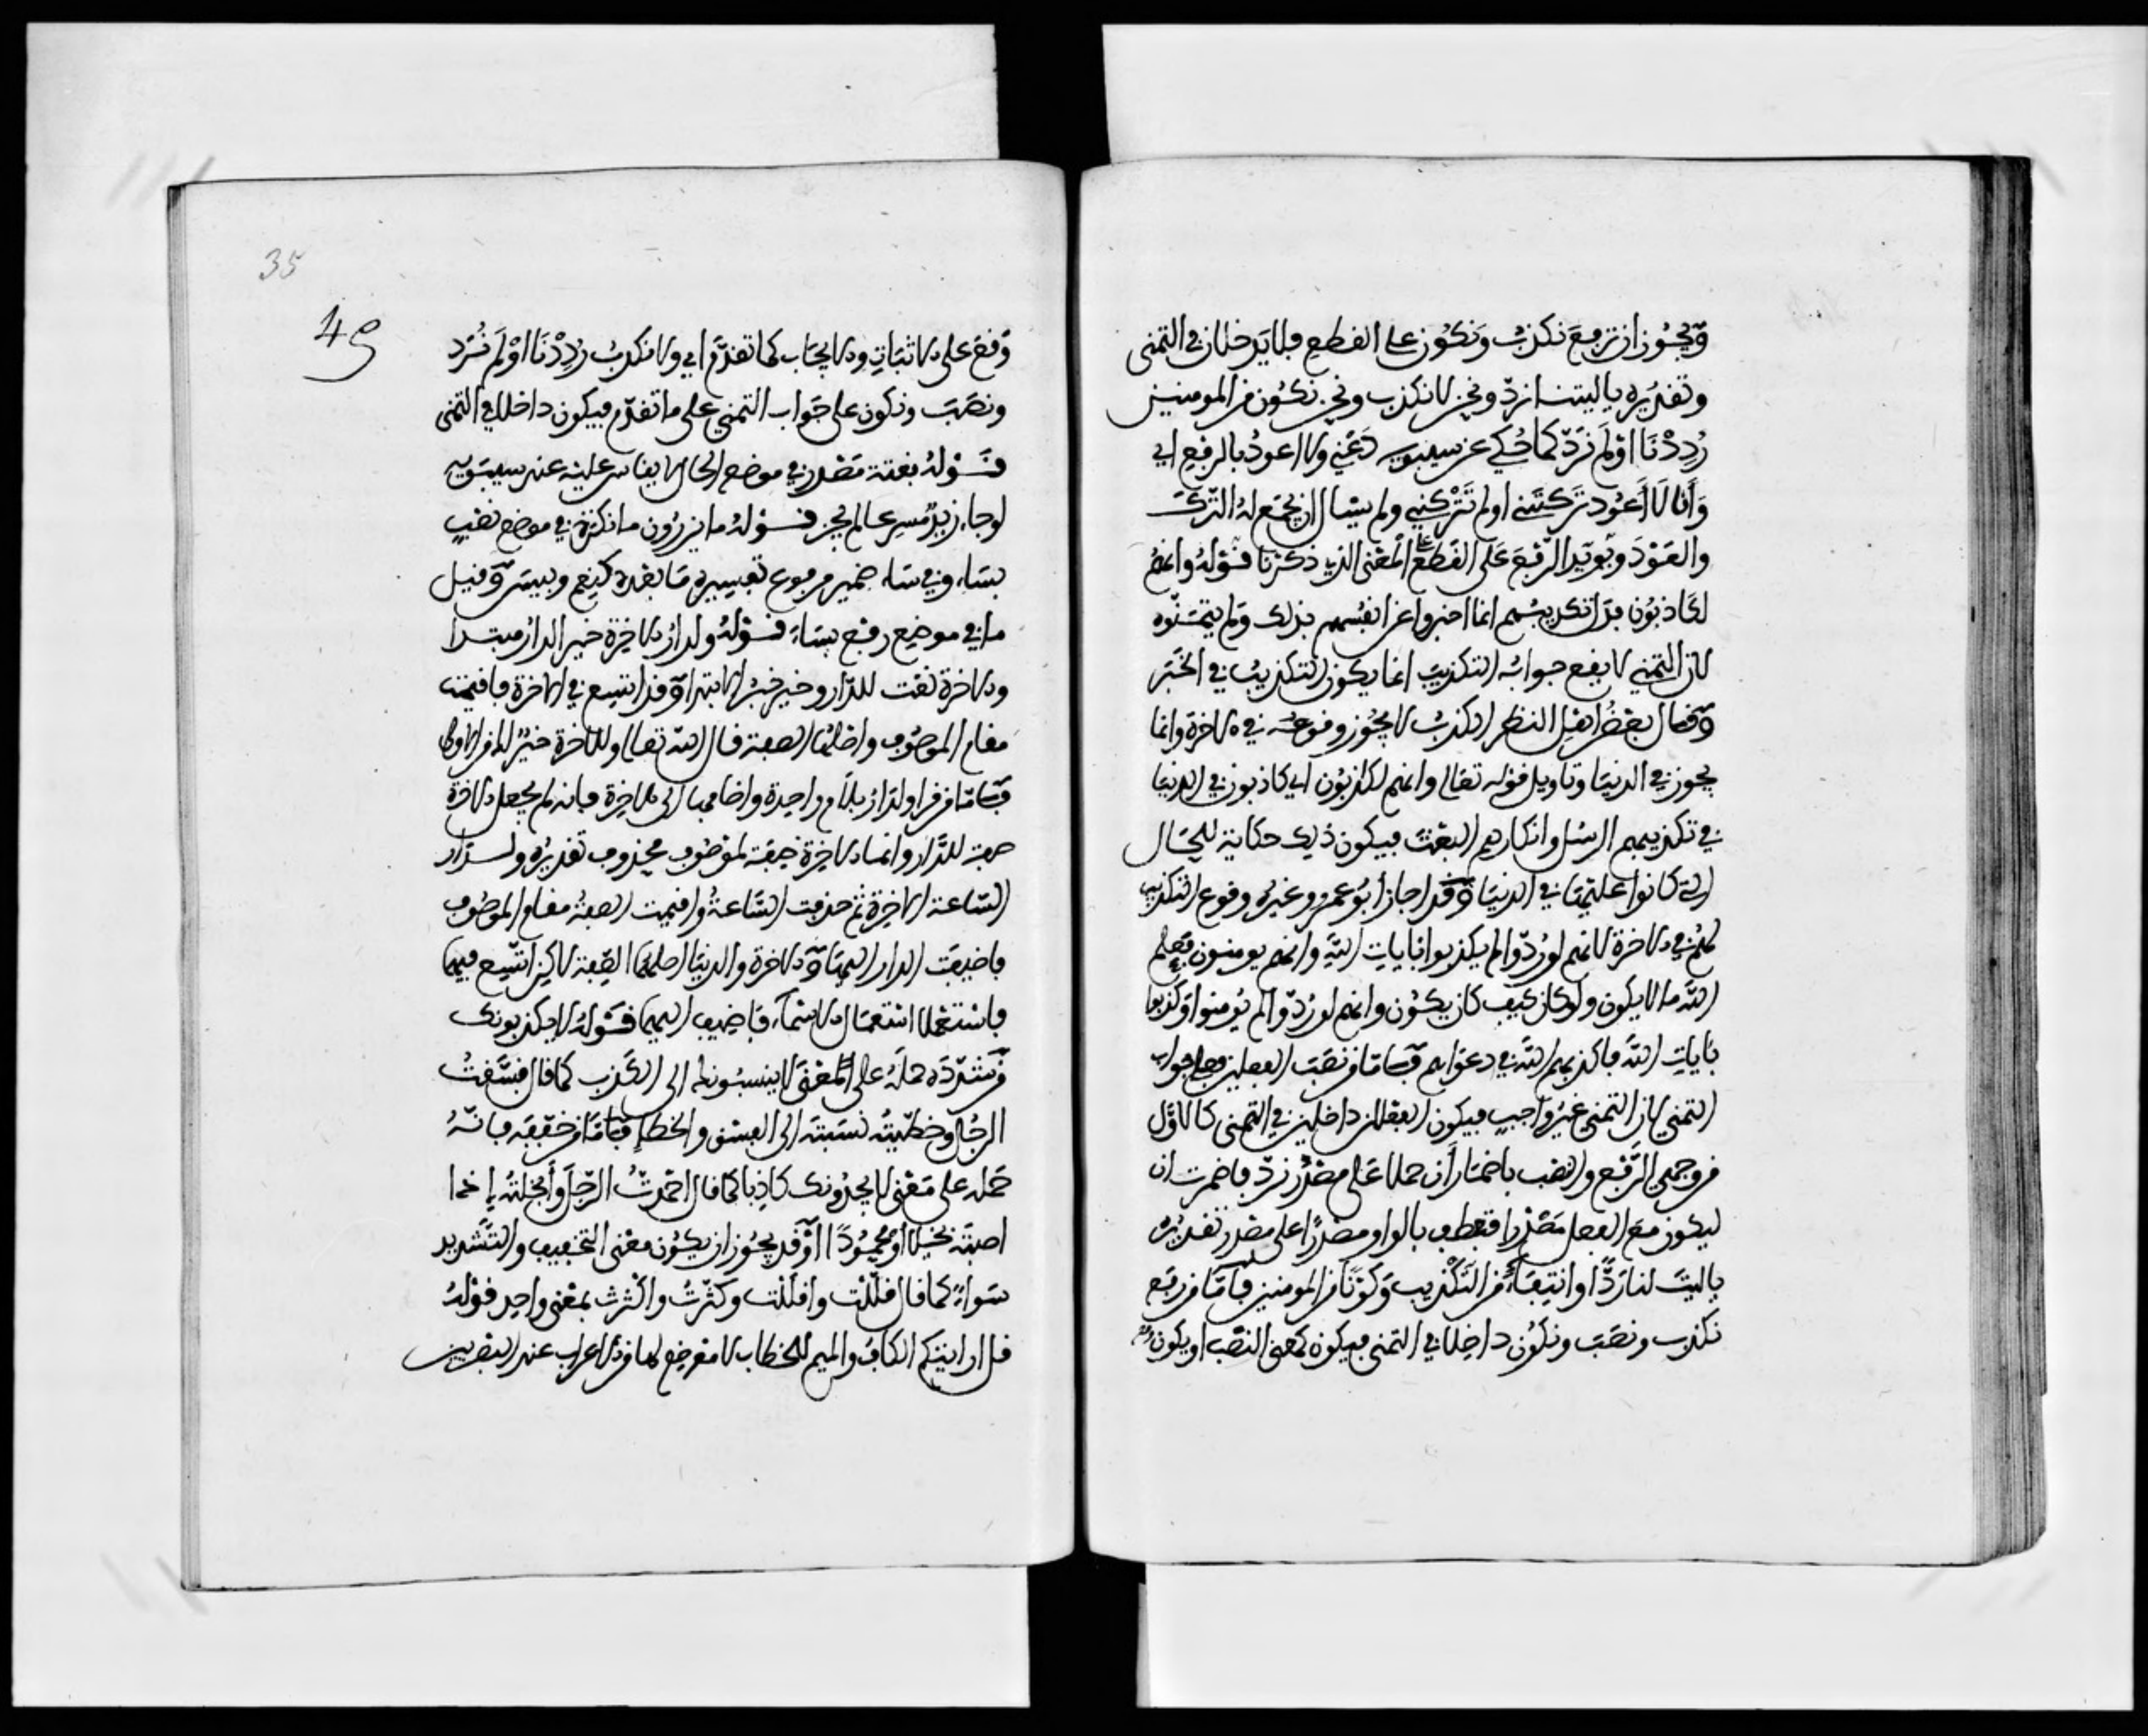 ويجوز ان ترفع نكذب ونكون على القطع فلا يدخلان في التمني
وتقديره ياليتنا نرد ونحن لا نكذب ونحن نكون من المومنين
رددنا او لم نرد كما حكى عن سيبويه دعني ولا اعود بالرفع اي
وانا لا اعود تركتني او لم تتركني ولم يسال ان يجمع له الترك
والعود ويويد الرفع على القطع على المعنى الذي ذكرنا قوله وانهم
لكاذبون فدل تكذيبهم انما اخبروا عن انفسهم بذلك ولم يتمنوه
لان التمني لا يقع جوابه التكذيب انما يكون التكذيب في الخبر
وقال بعض اهل النظر الكذب لا يجوز وقوعه في الاخرة وانما
يجوز في الدنيا وتاويل قوله تعالى وانهم لكاذبون اي كاذبون في الدنيا
في تكذيبهم الرسل وانكارهم البعث فيكون ذلك حكاية للحال
التي كانوا عليها في الدنيا وقد اجاز ابو عمرو وغيره وقوع التكذيب
لهم في الاخرة لانهم لو ردوا لم يكذبوا بايات الله وانهم يومنون فعلم
الله ما لا يكون ولو كان كيف كان يكون وانهم لو ردوا لم يومنوا وكذبوا
بايات الله فاكذبهم الله في دعواهم فاما من نصب الفعلين فعلى جواب
التمني لان التمني غير واجب فيكون الفعلان داخلين في التمني كالاول
من وجهي الرفع والنصب باضمار ان حملا على مصدر نرد فاضمرت ان
ليكون مع الفعل مصدرا فتعطف بالواو مصدرا على مصدر تقديره
ياليت لنا ردا وانتفاء من التكذيب وكونا من المومنين فاما من رفع
نكذب ونصب ونكون داخلا في التمني فيكون كمعنى النصب او يكون
35
49
رفع على الاثبات والايجاب كما تقدم اي ولا نكذب رددنا او لم نرد
ونصب ونكون على جواب التمني على ما تقدم فيكون داخلا في التمني
قوله بغتة مصدر في موضع الحال لا يقاس عليه عند سيبويه
لو جاء زيد مسرعا لم يجز قوله ما يزرون ما نكرة في موضع نصب
بساء وفي ساء ضمير مرفوع تفسيره ما بعده كنعم وبيس وقيل
ما في موضع رفع بساء قوله ولدار الاخرة خير الدار مبتدا
والاخرة نعت للدار وخير خبر الابتدا وقد اتسع في الاخرة فاقيمت
مقام الموصوف واصلها الصفة قال الله تعالى وللاخرة خير لك من الاولى
فاما من قرا ولدار بلام واحدة واضافها الى الاخرة فانه لم يجعل الاخرة
صفة للدار وانما الاخرة صفة لموصوف محذوف تقديره ولدار
الساعة الاخرة ثم حذفت الساعة واقيمت الصفة مقام الموصوف
فاضيفت الدار اليها والاخرة والدنيا اصلهما الصفة لكن اتسع فيهما
فاستعملا استعمال الاسماء فاضيف اليهما قوله لا يكذبونك
من شدده حمله على المعنى لا ينسبونك الى الكذب كما قال فسقت
الرجل وخطيته نسبته الى الفسق والخطا فاما من خففه فانه
حمله على معنى لا يجدونك كاذبا كما قال احمدت الرجل وابخلته اذا
اصبته بخيلا او محمودا وقد يجوز ان يكون معنى التخفيف والتشديد
سواء كما قال قللت واقللت وكثرت واكثرت بمعنى واحد قوله
قل ارايتكم الكاف والميم للخطاب لا موضع لهما من الاعراب عند البصريين